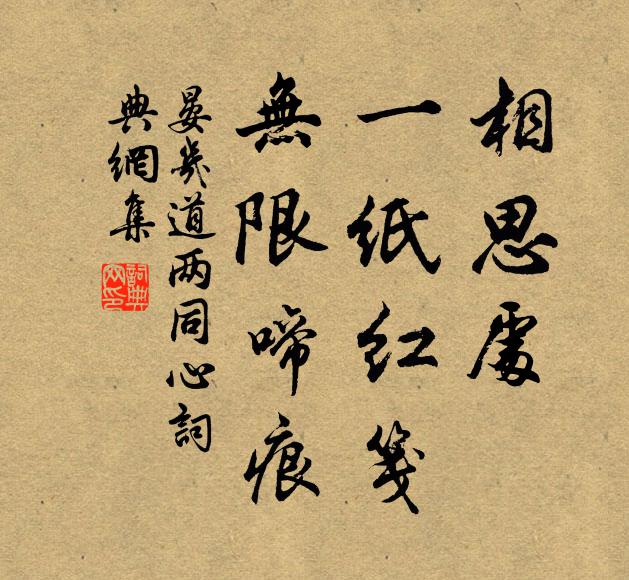 相思處
一紙紅箋
無限啼痕
晏幾道两同心詞
典網集
詞典網印